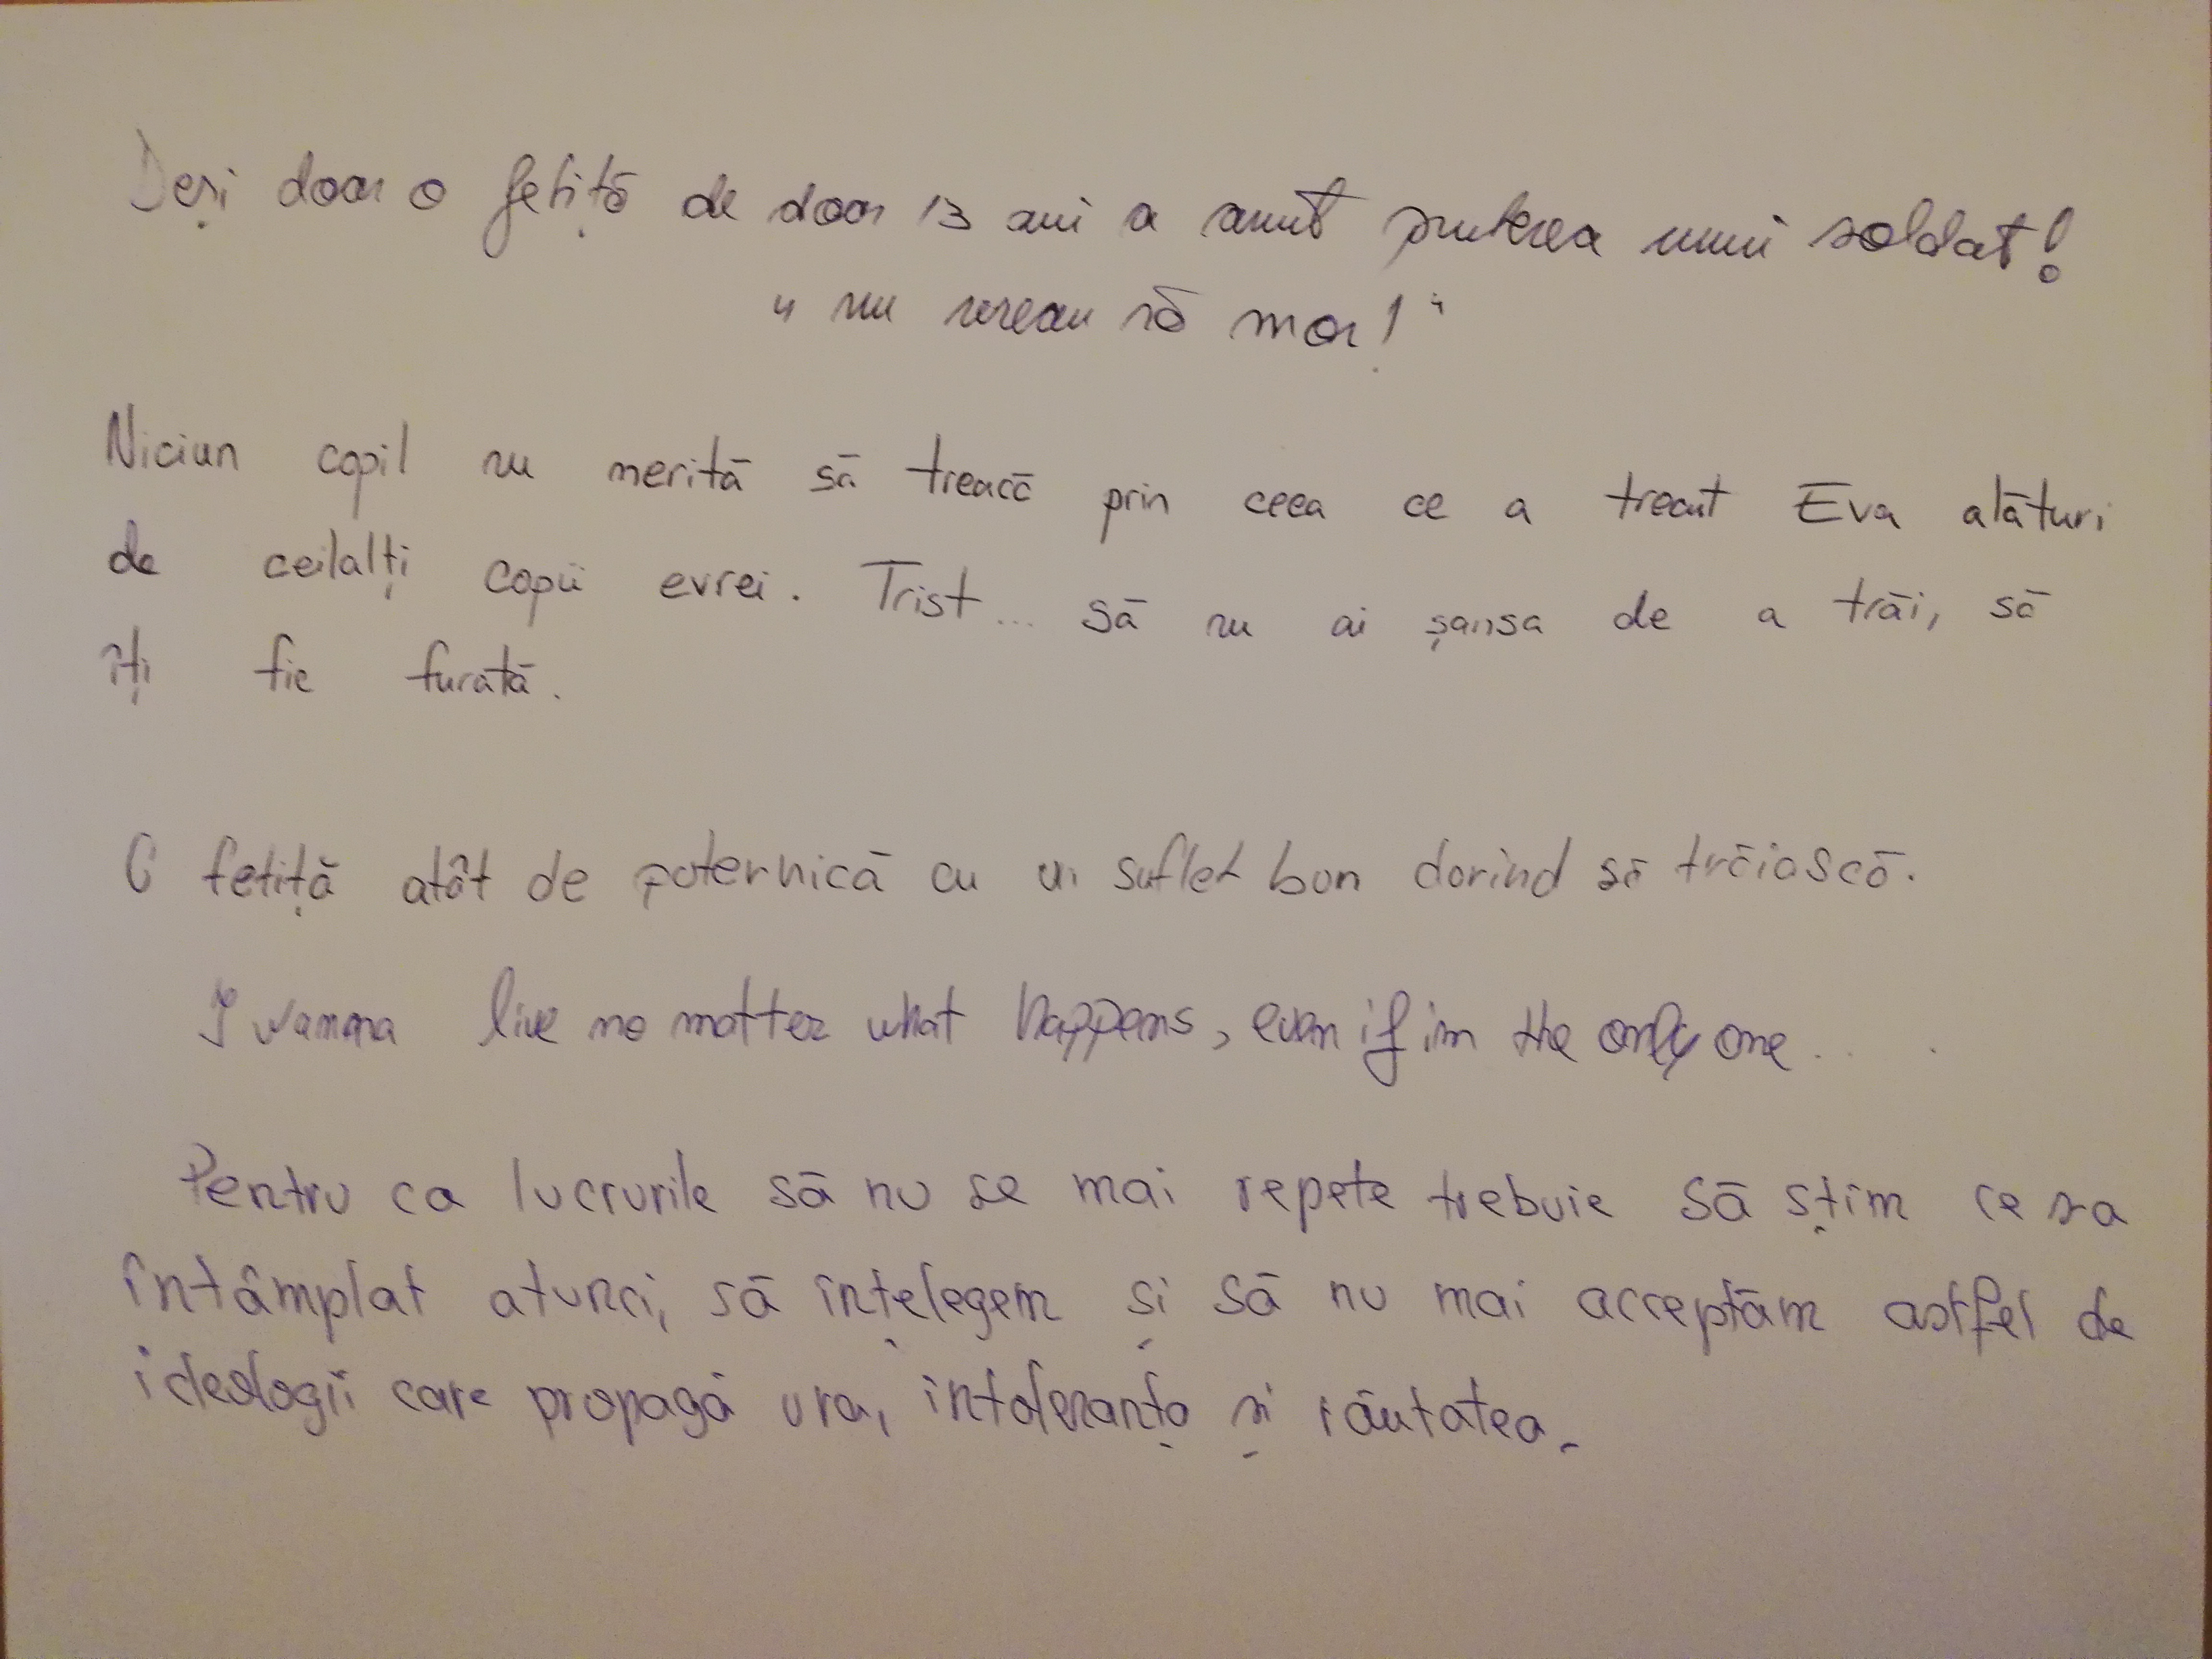 Deși doar o fetiță de doar 13 ani a avut puterea unui soldat!
"nu vreau să mor!"
Niciun copil nu merită să treacă prin ceea ce a trecut Eva alături
de ceilalți copii evrei. Trist... să nu ai șansa de a trăi, să
îți fie furată.
O fetiță atât de puternică cu un suflet bun dorind să trăiască.
I wanna live no matter what happens, even if im the only one...
Pentru ca lucrurile să nu se mai repete trebuie să știm ce s-a
întâmplat atunci, să înțelegem și să nu mai acceptăm astfel de
ideologii care propagă ura, intoleranța și răutatea.